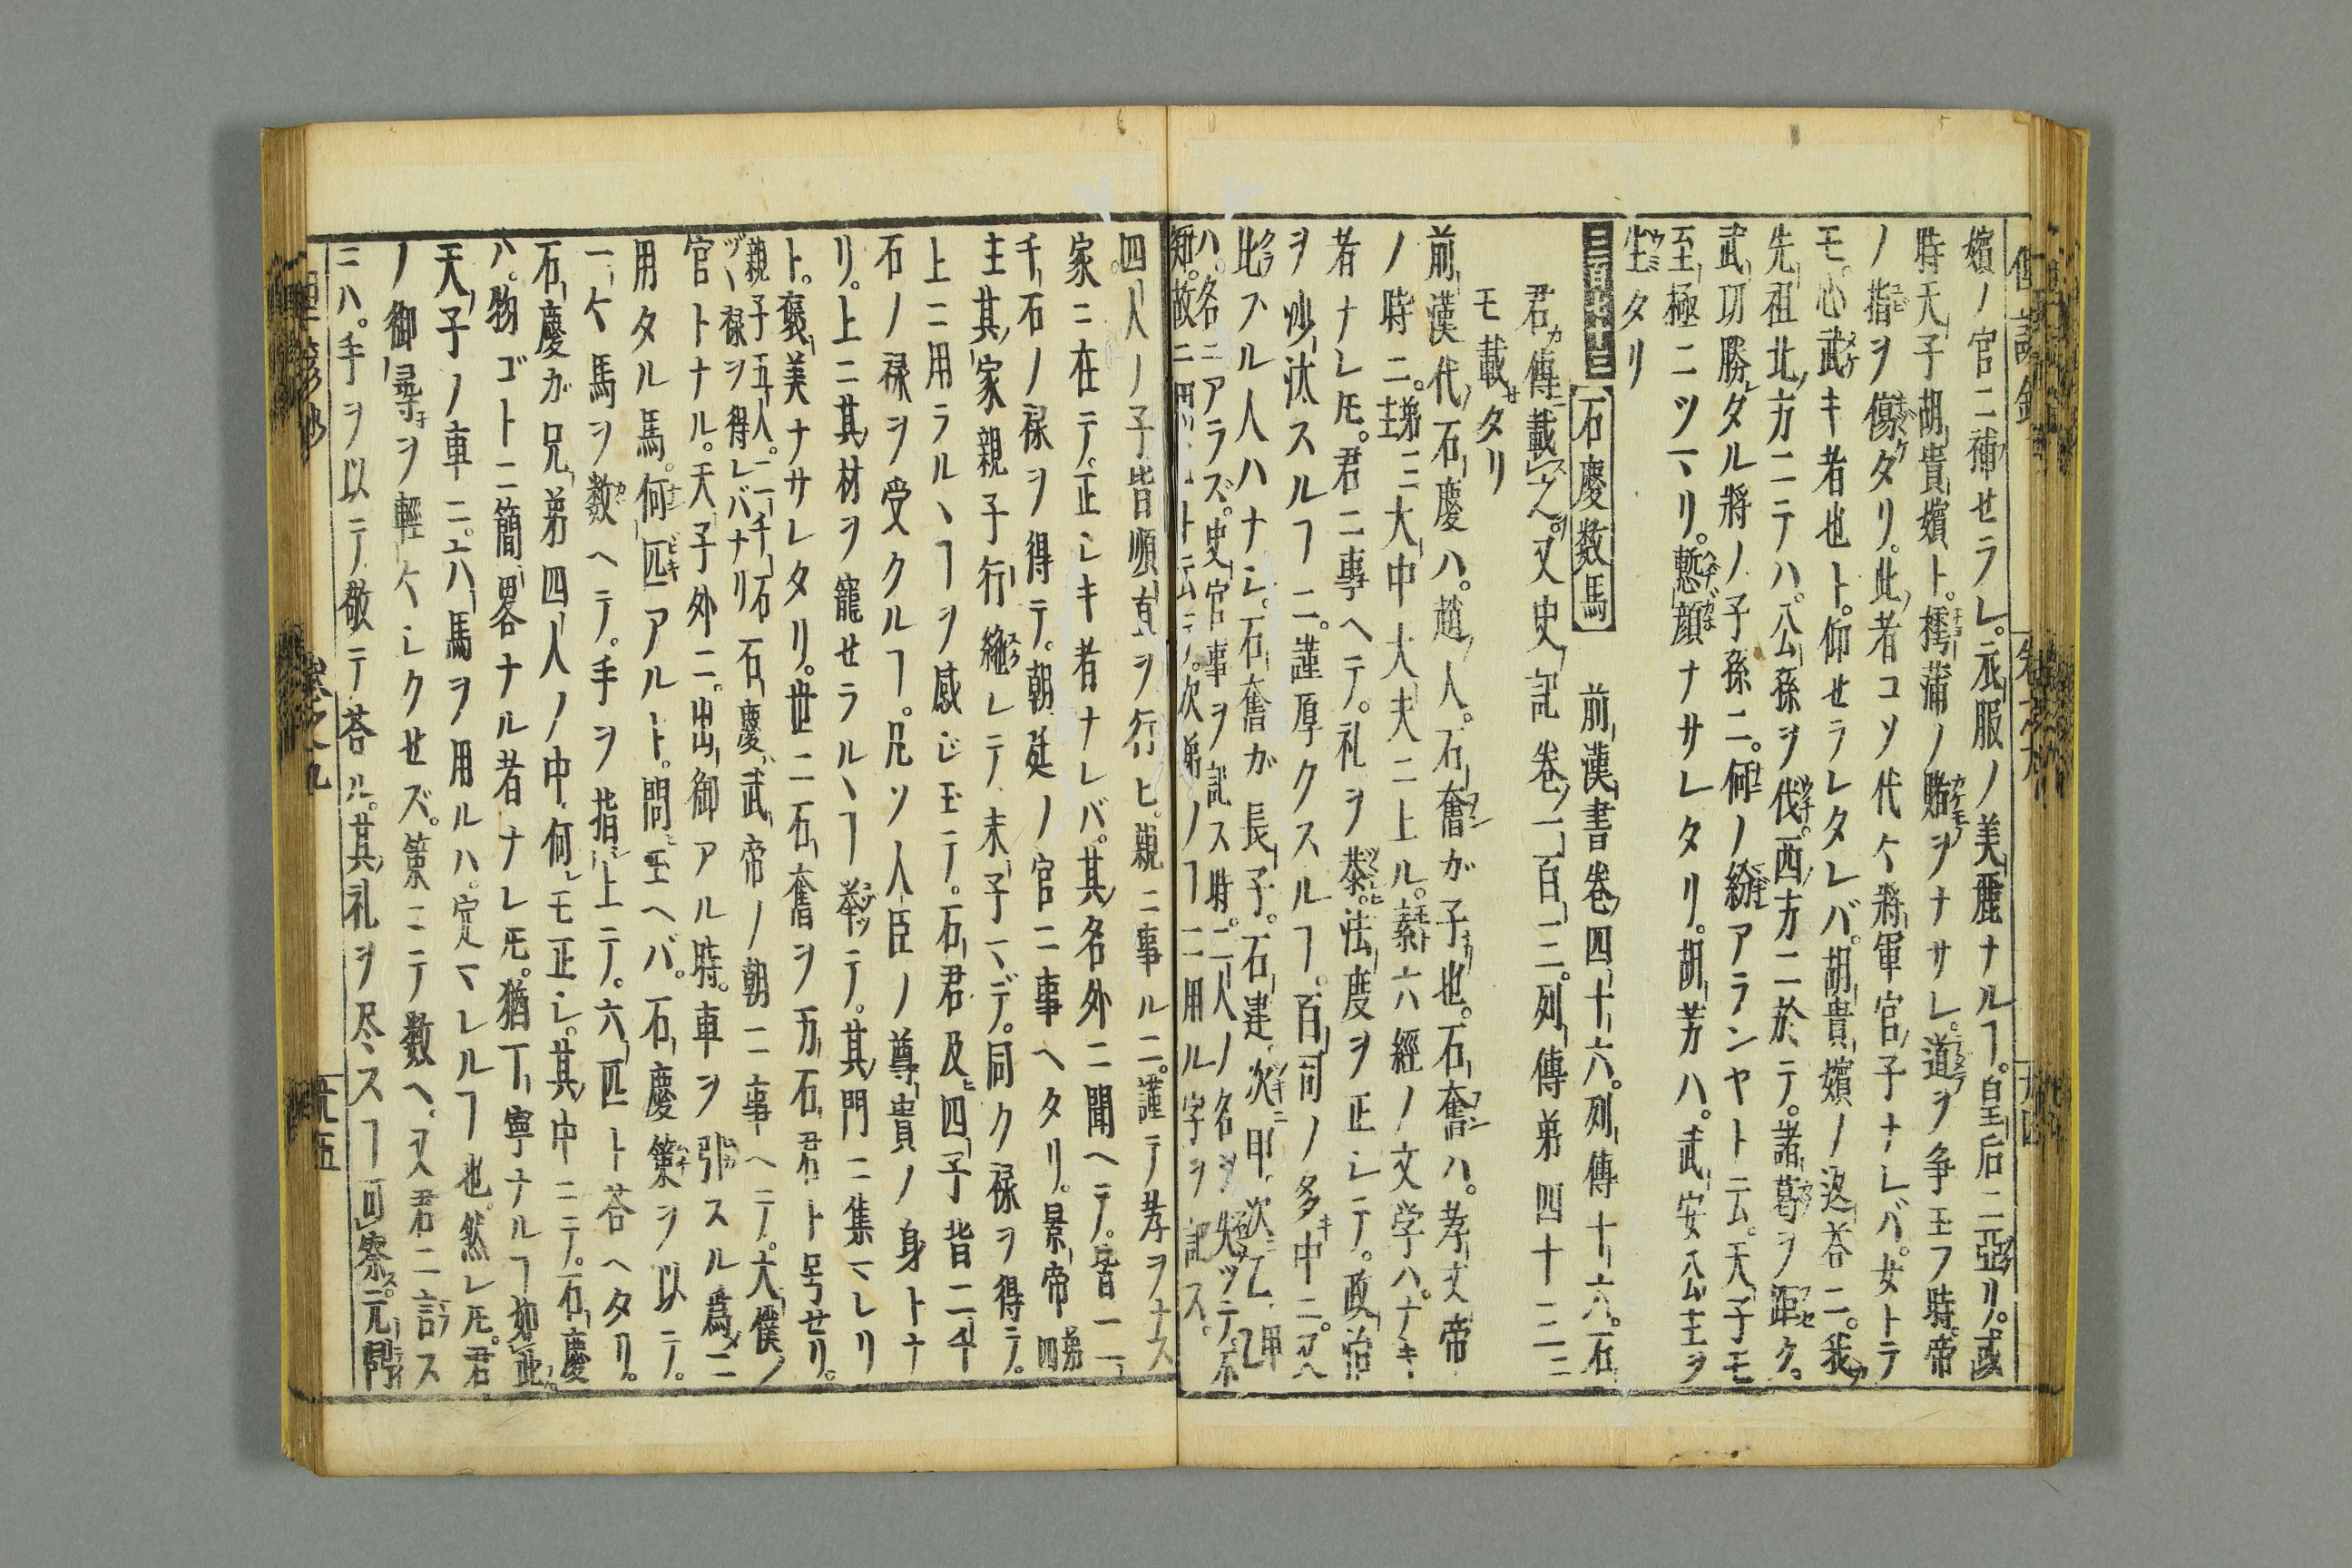 嬪ノ官ニ補セラレ。衣服ノ美麗ナルヿ。皇后ニ亞リ。或
時天子胡貴嬪ト。樗蒲ノ賭ヲナサレ。道ヲ争玉フ時。帝
ノ指ヲ傷ダリ。此者コソ代々將軍官ノ子ナレバ。女トテ
モ。心武キ者也ト。仰セラレタレバ。胡貴嬪ノ返荅ニ。我
先祖北方ニテハ。公孫ヲ伐。西方ニ於テ。諸葛ヲ距ク。
武功勝レタル將ノ子孫ニ。何ノ紛アランヤト云。天子モ
至極ニツマリ。慙顔ナサレタリ。胡芳ハ。武安公主ヲ
生タリ
石慶数馬 前漢書巻四十六。列傳十六。石
君傳載之。又史記巻一百三。列傳第四十三ニ
モ載タリ
前漢代石慶ハ。趙人。石奮ガ子也。石奮ハ。孝文帝
ノ時ニ。第三大中大夫ニ上ル。素六經ノ文学ハ。ナキ
者ナレ𪜈。君ニ事ヘテ。礼ヲ恭。法度ヲ正シテ。政治
ヲ沙汰スルヿニ。謹厚クスルヿ。百司ノ多キ中ニ。又ハ
比スル人ハナシ。石奮ガ長子。石建。次甲。次乙。甲乙
ハ。名ニアラズ。史官事ヲ記ス時。二人ノ名ヲ失ツテ不
知。故ニ甲乙ト云テ。次第ノヿニ用ル字ヲ記ス。
四人ノ子皆順直ヲ行ヒ。親ニ事ルニ。謹テ孝ヲナス
家ニ在テ。正シキ者ナレバ。其名外ニ聞ヘテ。皆二
千石ノ禄ヲ得テ。朝廷ノ官ニ事ヘタリ。景帝第四
主其家親子行繼レテ末子マデ。同ク禄ヲ得テ。
上ニ用ラルヽヿヲ感ジ玉テ。石君及四子皆二千
石ノ禄ヲ受クルヿ。凡ソ人臣ノ尊貴ノ身トナ
リ。上ニ其材ヲ寵セラルヽヿ挙テ。其門ニ集マレリ
ト。褒美ナサレタリ。世ニ石奮ヲ万石君ト号セリ。
親子五人。二千石ヅヽ禄ヲ得レバナリ 石慶武帝ノ朝ニ事ヘテ。大僕ノ
官トナル。天子外ニ。出御アル時。車ヲ引スル為ニ
用タル馬。何匹アルト。問玉ヘバ。石慶策ヲ以テ。
一々馬ヲ数ヘテ。手ヲ指上テ。六匹ト荅ヘタリ。
石慶ガ兄弟四人ノ中。何レモ正シ。其中ニテ。石慶
ハ。物ゴトニ簡畧ナル者ナレ𪜈。猶丁寧ナルヿ如此
天子ノ車ニ。六馬ヲ用ルハ。定マレルヿ也。然レ𪜈。君
ノ御尋ヲ輕々シクセズ。策ニテ数ヘ。又君ニ言ス
ニハ。手ヲ以テ敬テ荅ル。其礼ヲ尽スヿ可察。元門